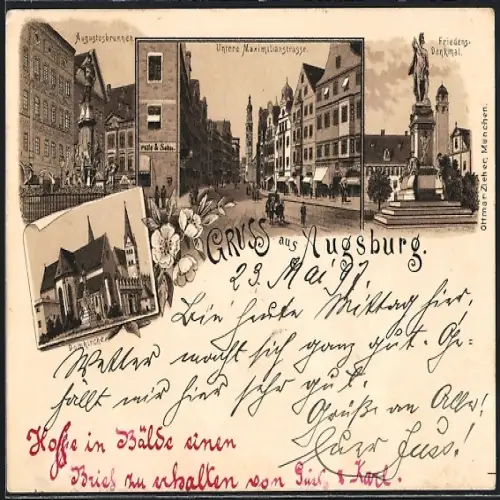 Augustusbrunnen
Untere Maximilianstrasse.
Friedens-
Denkmal.
Ottmar Zieher, München.
Domkirche
GRUSS aus Augsburg.
23. Mai 97
Bin heute Mittag hier.
Wetter macht sich ganz gut. Ge-
fällt mir hier sehr gut.
Grüße an Alle!
Euer
Hoffe in Bälde einen
Brief zu erhalten von & Karl.